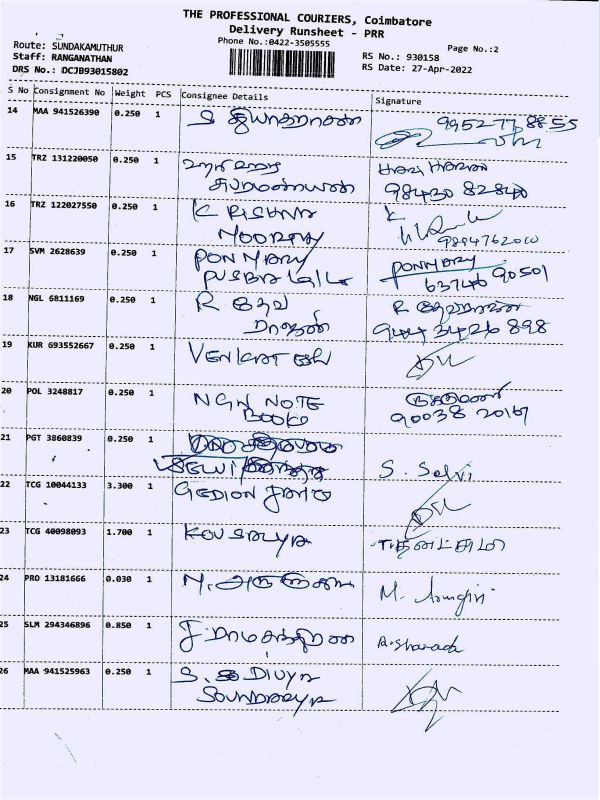 THE PROFESSIONAL COURIERS, Coimbatore
Delivery Runsheet - PRR
Phone No.:0422-3505555
Page No.:2
Route: SUNDAKAMUTHUR
Staff: RANGANATHAN
DRS No.: DCJB93015802
RS No.: 930158
RS Date: 27-Apr-2022
S No Consignment No Weight PCS Consignee Details Signature
14 MAA 941526390 0.250 1 S 99527 78855
15 TRZ 131220050 0.250 1 ஹரி ஹர
சுப்ரமணியன் 98430 82840
16 TRZ 122027550 0.250 1 KRISHNA K
MOORTHY
17 SVM 2628639 0.250 1 PON MARY PONMARY
63746 90501
18 NGL 6811169 0.250 1 R தேவ R
ராஜன் 944 3426 898
19 KUR 693552667 0.250 1 VENKATESH
20 POL 3248817 0.250 1 NGN NOTE
BOOK 90038 20167
21 PGT 3860839 0.250 1
SELVI S. Selvi
22 TCG 10044133 3.300 1 GEDION
23 TCG 40098093 1.700 1 KOUSALYA
24 PRO 13181666 0.030 1 M. M.
25 SLM 294346896 0.850 1 J ராமசந்திரன் R.Sharada
26 MAA 941525963 0.250 1 S. DIVYA
SOUNDARYA